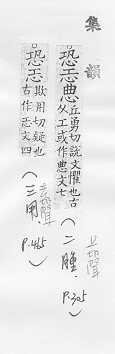 集韻
恐㤟㥶丘勇切說文懼也古
从工或作㥶文七
(二腫.
P.305
上聲
恐㤟欺用切疑也
古作㤟文四
(三用
去聲
P.465